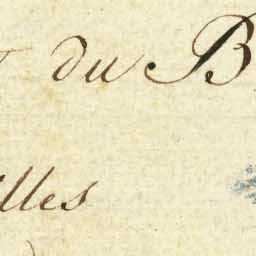 du B
illes